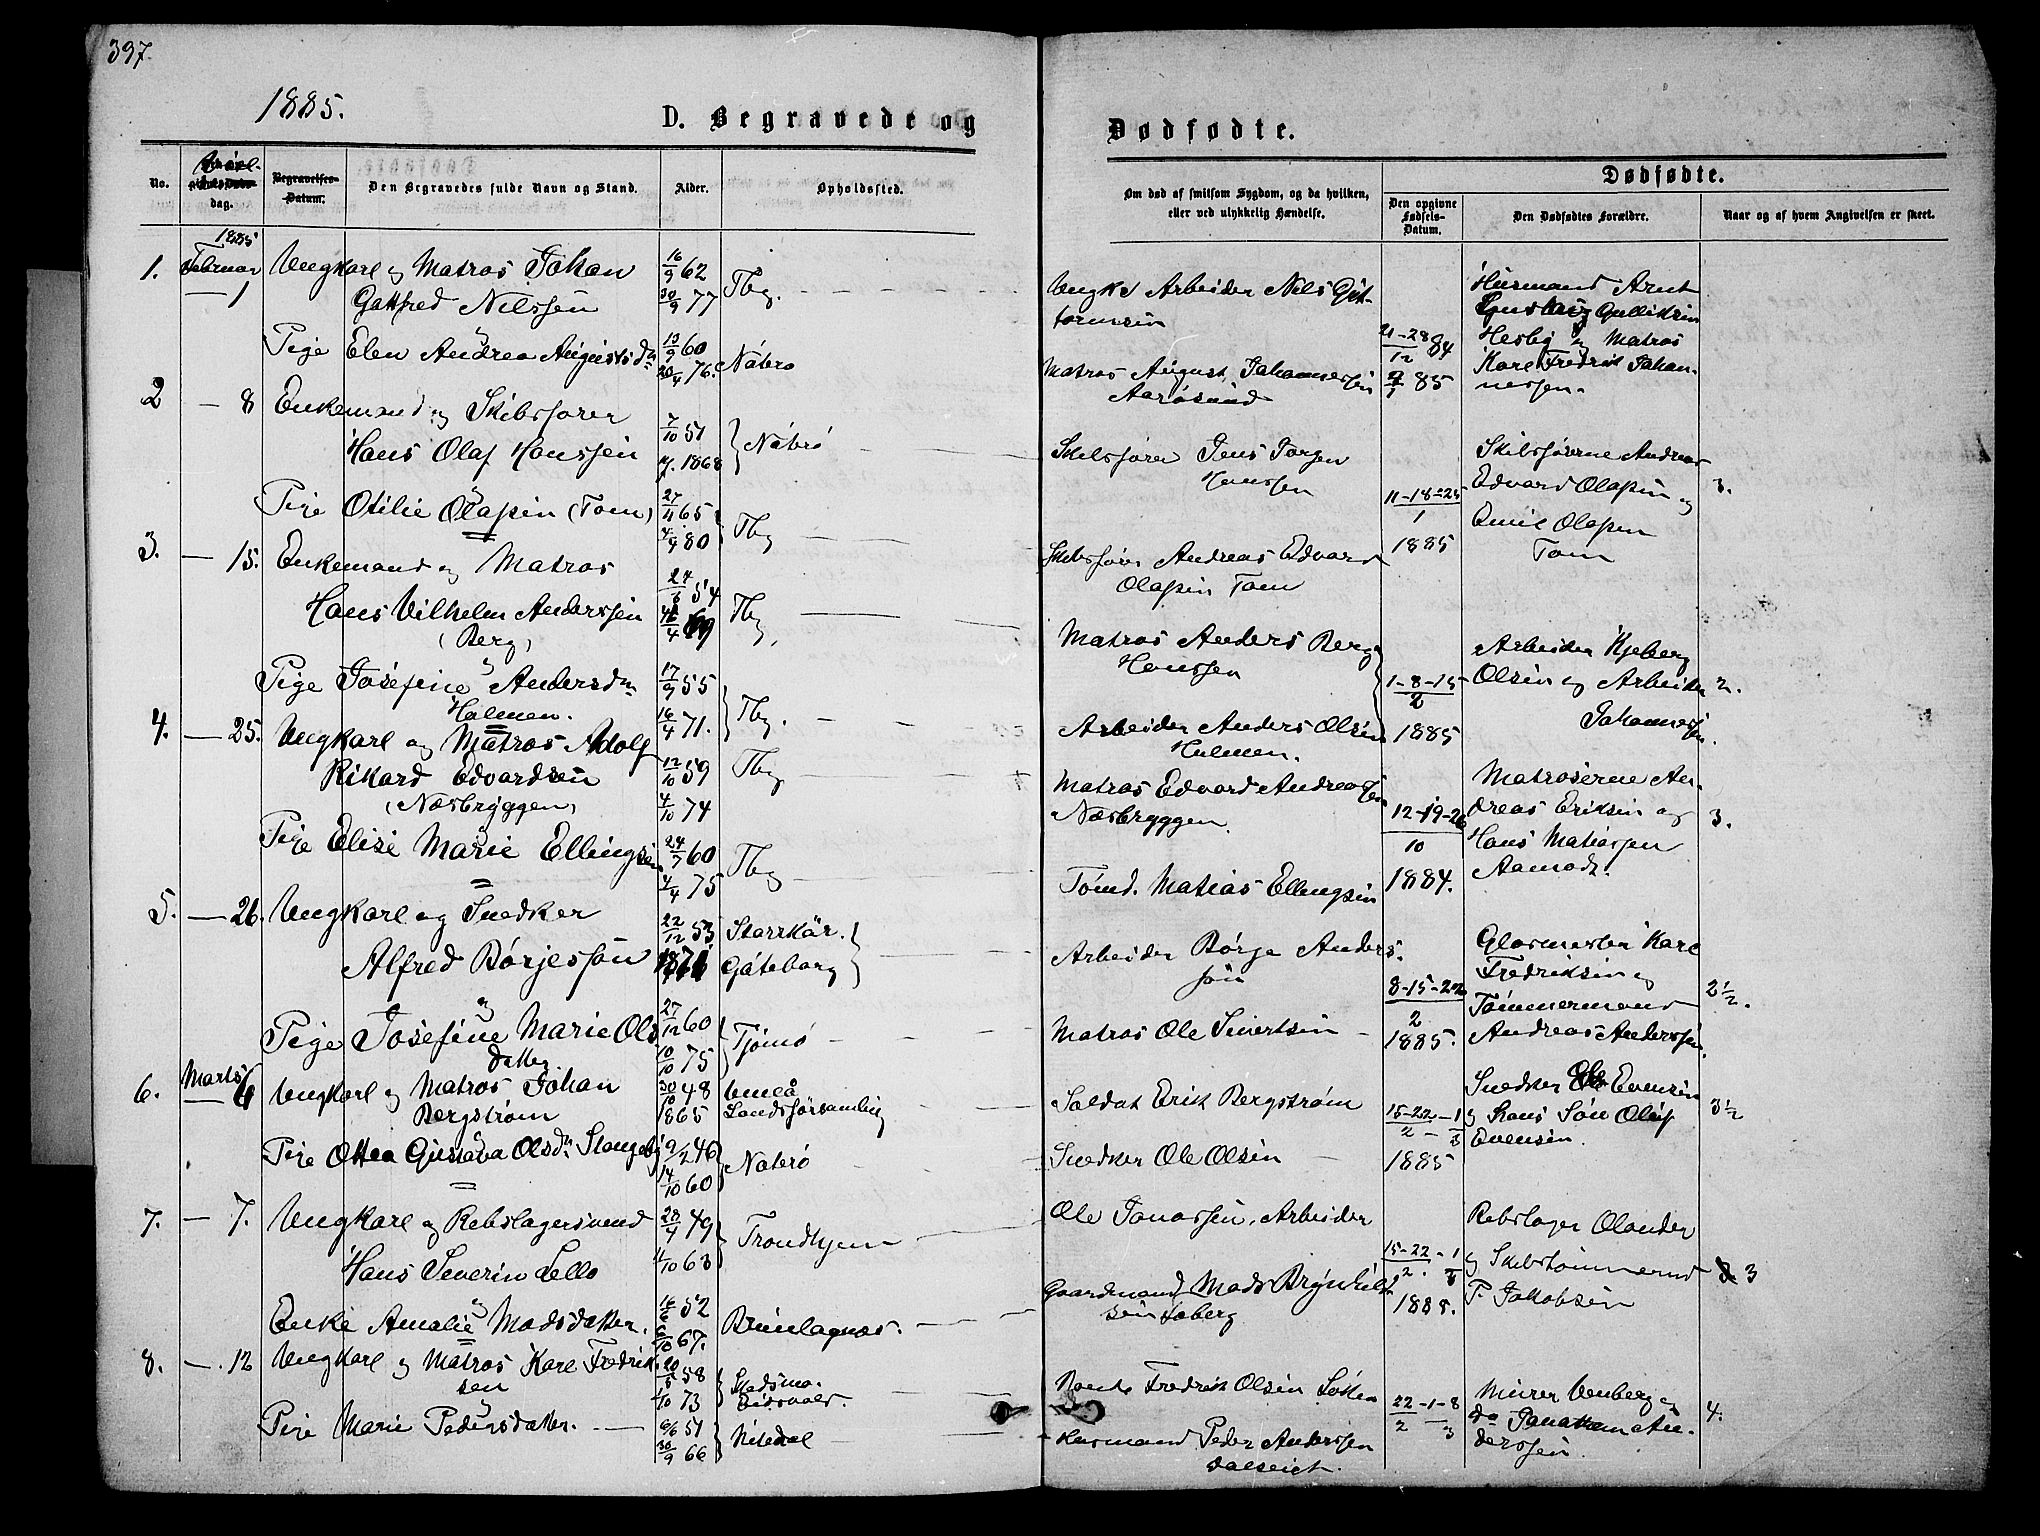 397.
1885.
D. Begravede og
Dødfødte.
No.
dag.
Begravelses-
Datum.
Den Begravedes fulde Navn og Stand.
Alder.
Opholdssted.
Om død af smitsom Sygdom, og da hvilken,
eller ved ulykkelig Hændelse.
Dødfødte.
Den opgivne
Fødsels-
Datum.
Den Dødfødtes Forældre.
Naar og af hvem Angivelsen er skeet.
1885
1. Februar Ungkarl og Matros Johan 16/9 62
1 Nilssen 30/9 77 Tbg.
Ungk. Arbeider Nils Gut-
tormsen
Husmand Arnt
Gulliksen
Pige Elen Andrea Augustsdn 13/9 60
20/4 76. Nøterø
Matros August Johannessen
Aarøsund
21-28/12 84
4/1 85
Hesby og Matros
Karl Fredrik Johan-
nessen.
2 8 Enkemand og Skibsfører
Hans Olaf Hanssen 7/10 51
1868 Nøterø
Skibsfører Jens Jørgen
Hanssen
Skibsførerne Andreas
Edvard Olassen og 3.
Pige Otilie Olassen (Tom) 27/4 65
4/4 80 Tbg
Skibsfører Andreas Edvard
Olassen Tom
11-18-25/1
1885
Emil Olassen
Tom
3. 15. Enkemand og Matros
Hans Vilhelm Anderssen 24/6 54
(Berg) Tbg,
Matros Anders Berg
Hanssen
Arbeider Kjeberg
Olsen og Arbeider 2.
Johannessen.
Pige Josefine Andersdn 17/9 55
Holmen. 16/4 71. Tbg.
Arbeider Anders Olsen
Holmen.
1-8-15/2
1885
4. 25. Ungkarl og Matros Adolf
Rikard Edvardsen 12/10 59 Tbg
(Næsbryggen) 4/10 74
Matros Edvard Andreassen
Næsbryggen.
Matroserne An-
dreas Eriksen og 3.
Hans Matiassen
Aamodt.
Pige Elise Marie Ellingsen 24/7 60
4/4 75 Tbg
Tømd. Matias Ellingsen
12-19-26/10
1884.
5. 26. Ungkarl og Snedker
Alfred Börjessön 22/12 53 Starrkär.
1871 Göteborg
Arbeider Börge Anders-
sön
Glasmester Karl
Fredriksen og 2 1/2.
Tømmermand
Andreas Anderssen.
Pige Josefine Marie Ols 27/12 60
datter 10/10 75 Tjømø
Matros Ole Sivertsen
8-15-22/2
1885.
6. Marts 6 Ungkarl og Matros Johan 30/10 48 Umeå
Bergstrøm 1865 Landsförsamling
Soldat Erik Bergstrøm
Snedker Ole Evensen
og hans Søn Oluf 3 1/2
Evensen.
Pige Othea Gustava Olsdn Slangeby 9/2 46
14/10 60 Nøterø
Snedker Ole Olsen
15-22/2 - 1/3
1885
7. 7. Ungkarl og Rebslagersvend 28/4 49
Hans Severin Lello 11/10 63 Trondhjem
Ole Jonassen, Arbeider
Rebslager Olander
og Skibstømmermd 3
P. Jakobsen
Enke Amalie Madsdatter. 16/6 52
6/10 67. Brunlagnæs.
Gaardmand Mads Brynhild-
sen Foberg
15-22/2 . 1/3
1885.
8. 12 Ungkarl og Matros Karl Fredrik- 20/5 58
sen 1/10 73 Skedsmo.
Eidsvold.
Fredrik Olsen
Murer Venberg og
do Jonathan An- 4.
derssen.
Pige Marie Pedersdatter. 6/6 51
30/9 66 Nitedal
Husmand Peder Anderssen
Dalseiet.
22/2 -1-8/3